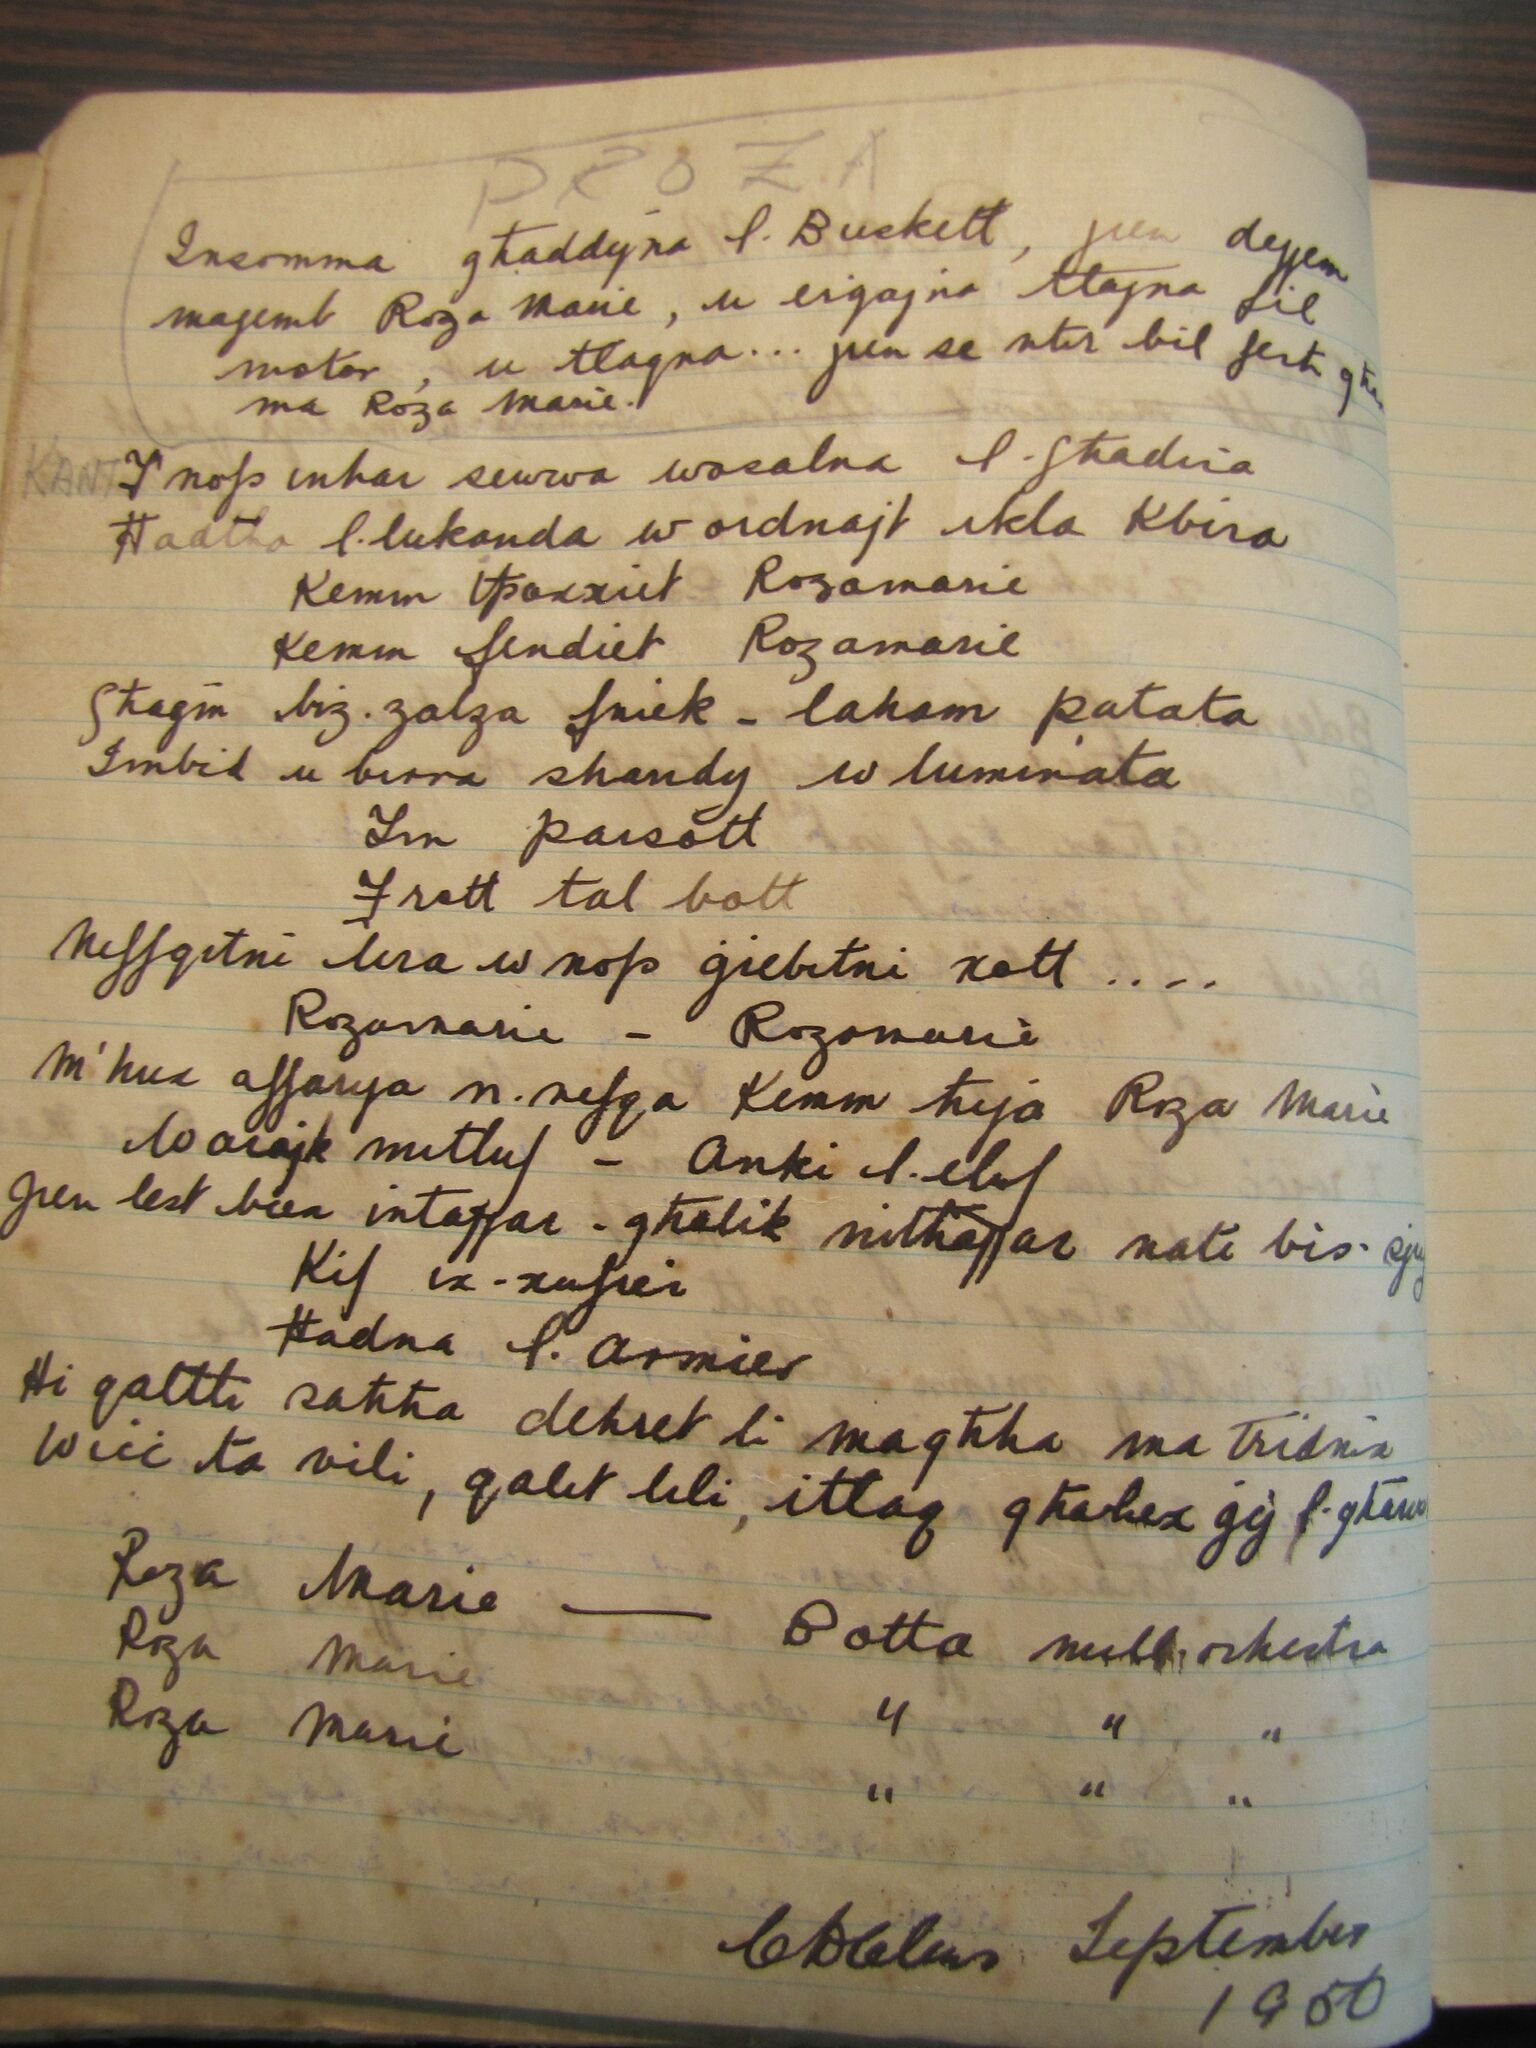 PROZA
Insomma għaddejna l. Buskett, jien dejjem
magemb Roza Marie, u ergajna tlajna fil
motor, u tlaqna... jien se ntir bil ferh għax
ma Roza Marie.
KANT F'nofs inhar sewwa wasalna l-Għadira
Hadtha l.lukanda w ordnajt ikla Kbira
Kemm tpaxxiet Rozamarie
Kemm fendiet Rozamarie
Għagin biz.zalza fniek - laham patata
Imbid u birra shandy w luminata
Im parsott
Frott tal bott
Neffqitni lira w nofs ġiebitni xott ....
Rozamarie - Rozamarie
M'hux affarija n.nefqa Kemm hija Roza Marie
Warajk mitluf - Anki l-eluf
Jien lest biex intajjar - għalik nithajjar nati bis-
Kif ix-xufier
Hadna l. Armier
Hi qaltli sahha dehret li magħha ma tridnix
Wiċċ ta vili, qalet lili, itlaq għaliex ġej l-għarus
Roza Marie — Botta mill orkestra
Roza Marie " " "
Roza Marie " " "
September
1950